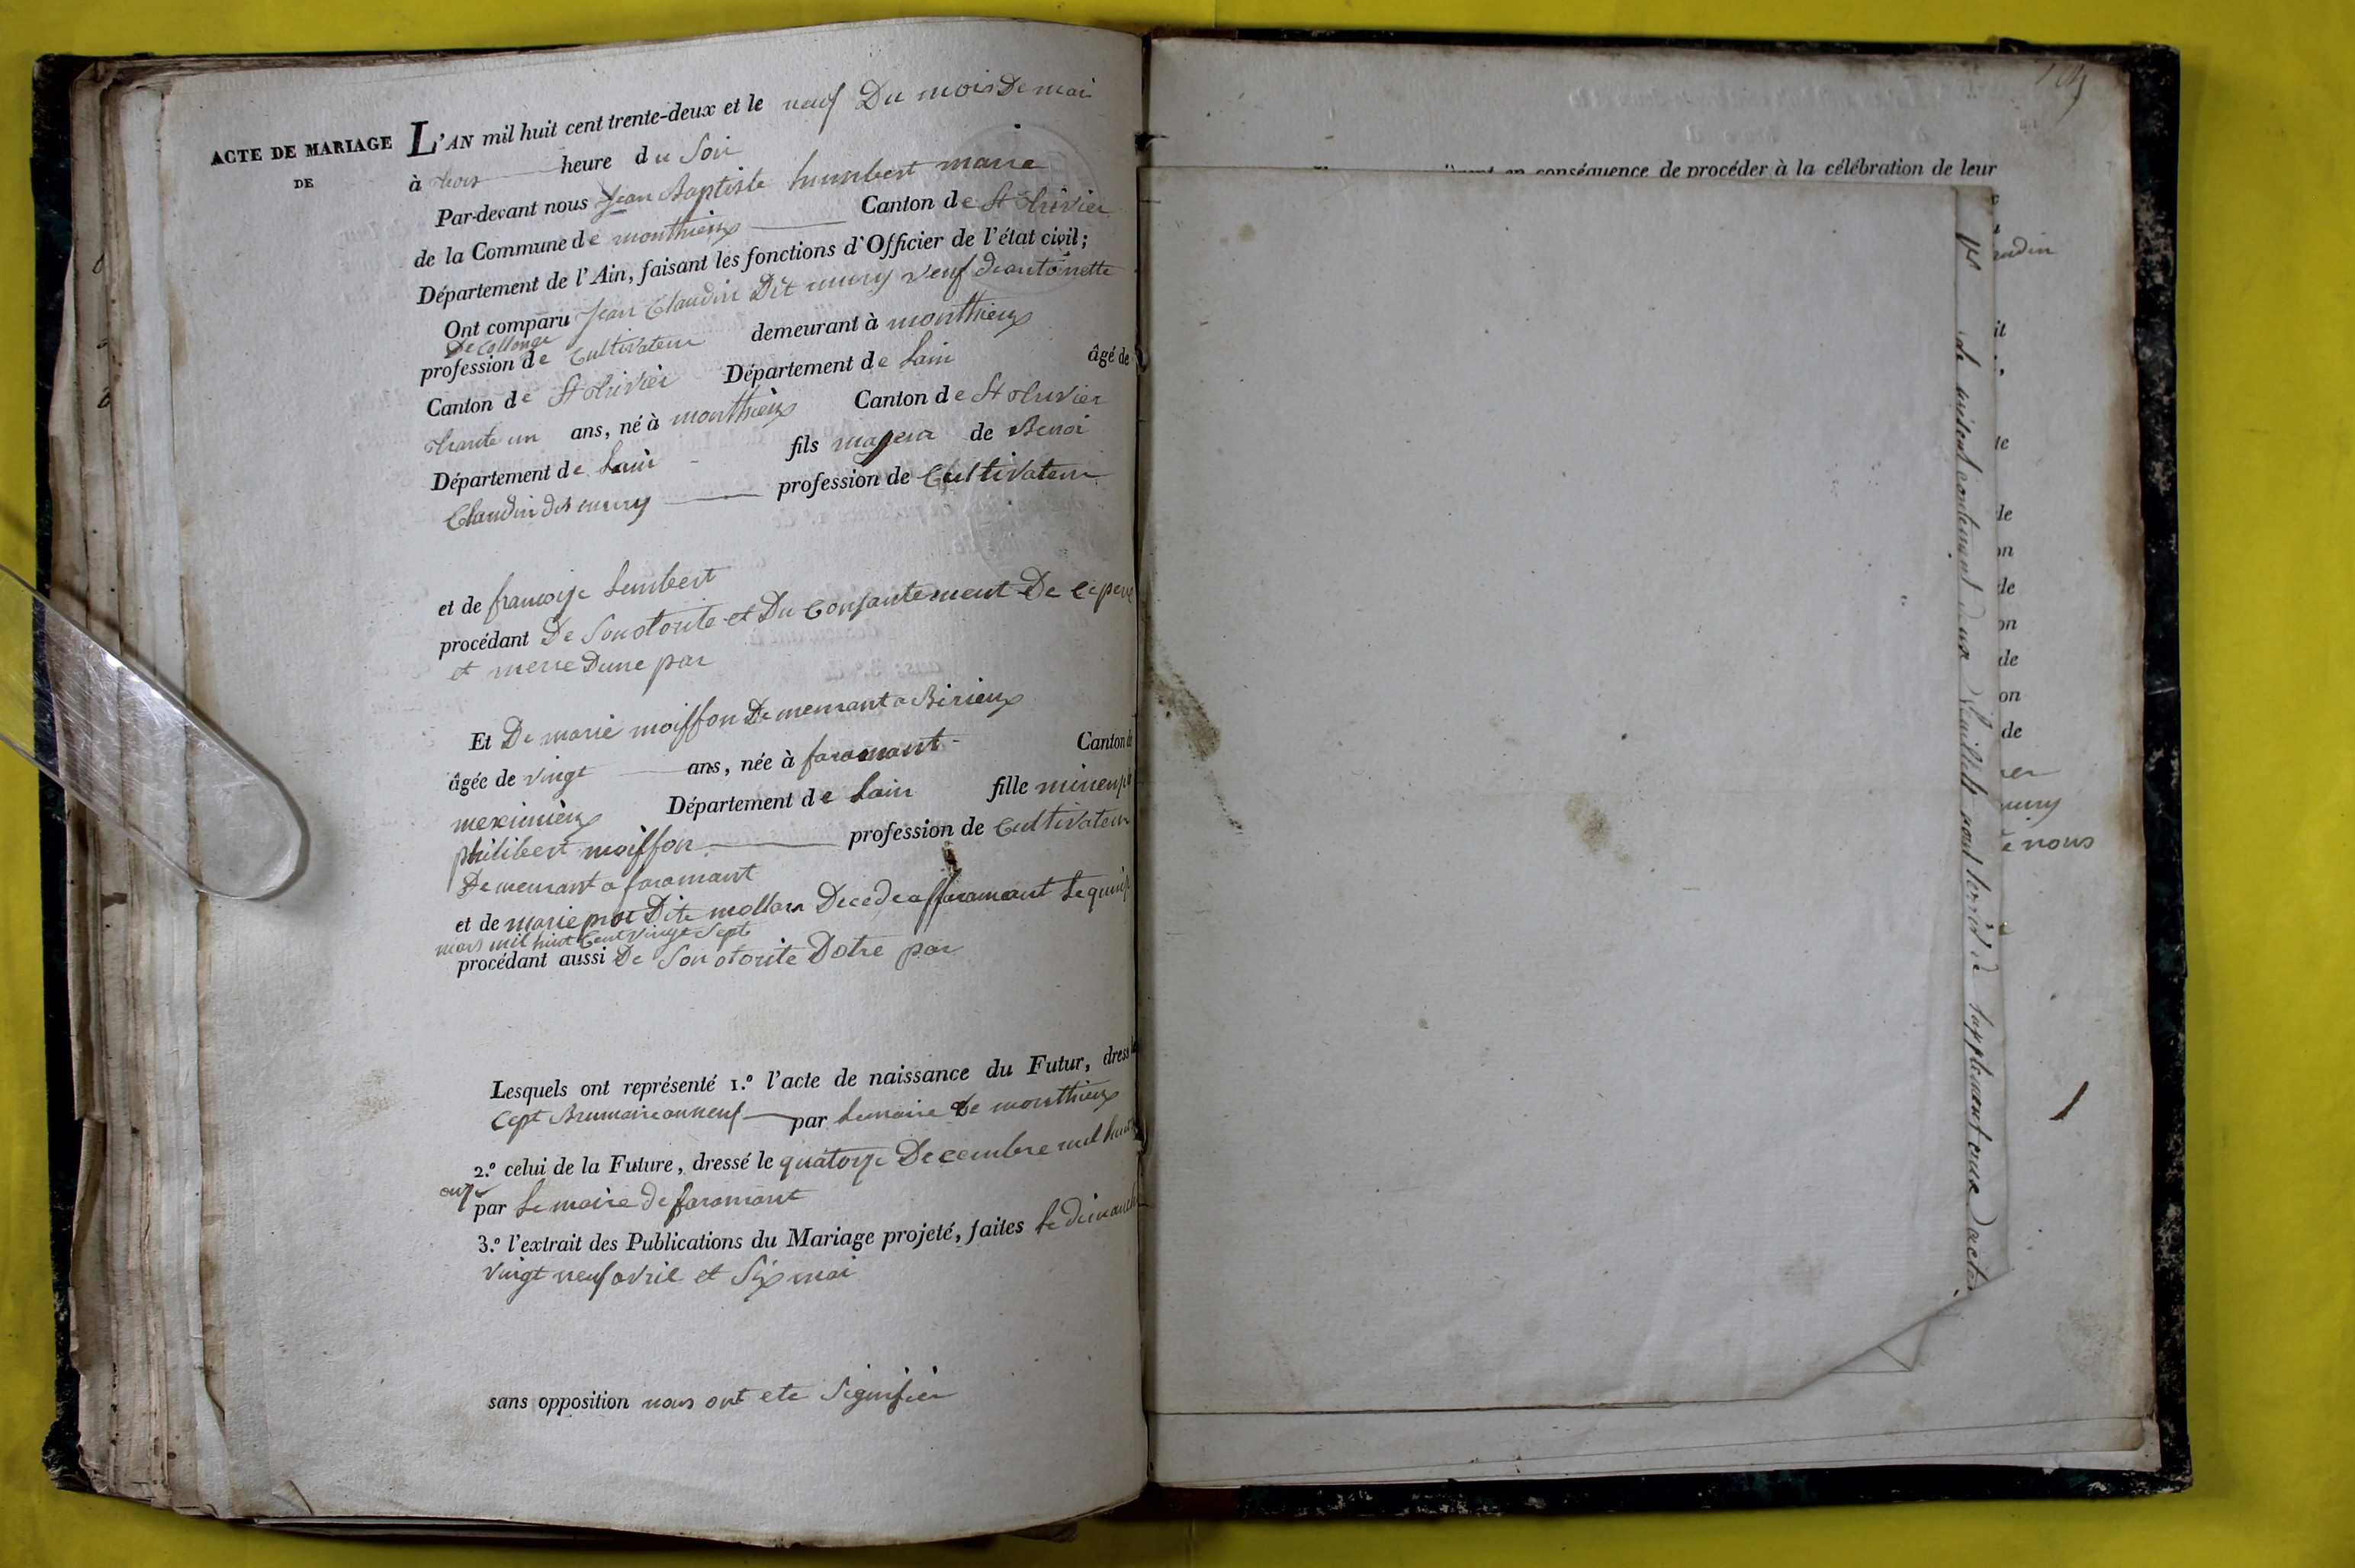 ACTE DE MARIAGE
DE
L'AN mil huit cent trente-deux et le neuf Du mois De mai
à trois heure du Soir
Par-devant nous Jean Baptiste humbert maire
de la Commune de monthieux Canton de St trivier
Département de l'Ain, faisant les fonctions d'Officier de l'état civil;
Ont comparu Jean Claudin Dit mury veuf de antoinette
De Collonge
profession de Cultivateur demeurant à monthieux
Canton de St trivier Département de Lain âgé de
trante un ans, né à monthieux Canton de St trivier
Département de Lain fils majeur de Benoi
Claudin dit mury profession de Cultivateur
et de francoise Lembert
procédant De Son otorite et Du Consantement De Ce pere
et mere Dune par
Et De marie moisson Demeurant a Birieux
âgée de vingt ans, née à faramant Canton de
meximieux Département de Lain fille mineur
philibert moisson profession de Cultivateur
Demeurant a faramant
et de marie Dite mollara Decedea faramant Le quinze
mars mil huit Cent vingt Sept
procédant aussi De Son otorite Dotre par
Lesquels ont représenté 1.º l'acte de naissance du Futur, dressé le
Cept Brumaire an neuf par Le maire De monthieux
2.º celui de la Future, dressé le quatorze Decembre mil huit
onze
par Le maire de faramant
3.º l'extrait des Publications du Mariage projeté, faites Le dimanche
vingt neuf avril et Six mai
sans opposition nous ont ete Signifier
en conséquence de procéder à la célébration de leur
audin
it
te
de
on
de
on
de
on
de
mury
e nous
le present contenant deux feuillets pour servir de Supplement aux actes